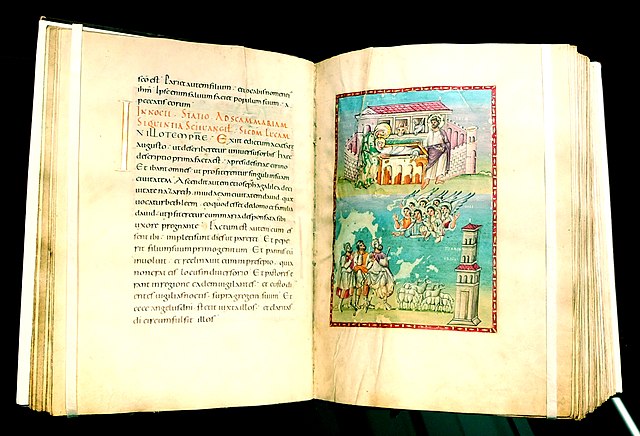 sco est. Pariet autem filium; et uocabis nomen eius
ihm. Ipse enim saluum faciet populum suum. a
peccatis eorum.
IN NOCTE. STATIO AD SCAM MARIAM.
SEQUENTIA SCI EUANGEL. SECDM LUCAM.
IN ILLO TEMPRE. Exiit edictum a caesare
augusto. ut describeretur uniuersus orbis. haec
descriptio prima facta est. a preside sirie cirino
Et ibant omnes ut profiterentur singuli in suam
ciuitatem. Ascendit autem et ioseph a galilea de ci
uitate nazareth. in iudaeam ciuitatem dauid. quae
uocatur bethleem. eo quod esset de domo et familia
dauid. ut profiteretur cum maria desponsata sibi
uxore pregnante. Factum est autem cum es
sent ibi. impleti sunt dies ut pareret. Et pepe
rit filium suum primogenitum. Et pannis eu
inuoluit. et reclinauit eum in presepio. quia
non erat eis locus in diuersorio. Et pastores e
rant in regione eadem uigilantes. et custodi
entes uigilias noctis. supra gregem suum. Et
ecce angelus dni stetit iuxta illos. et claritas
di circumfulsit illos.